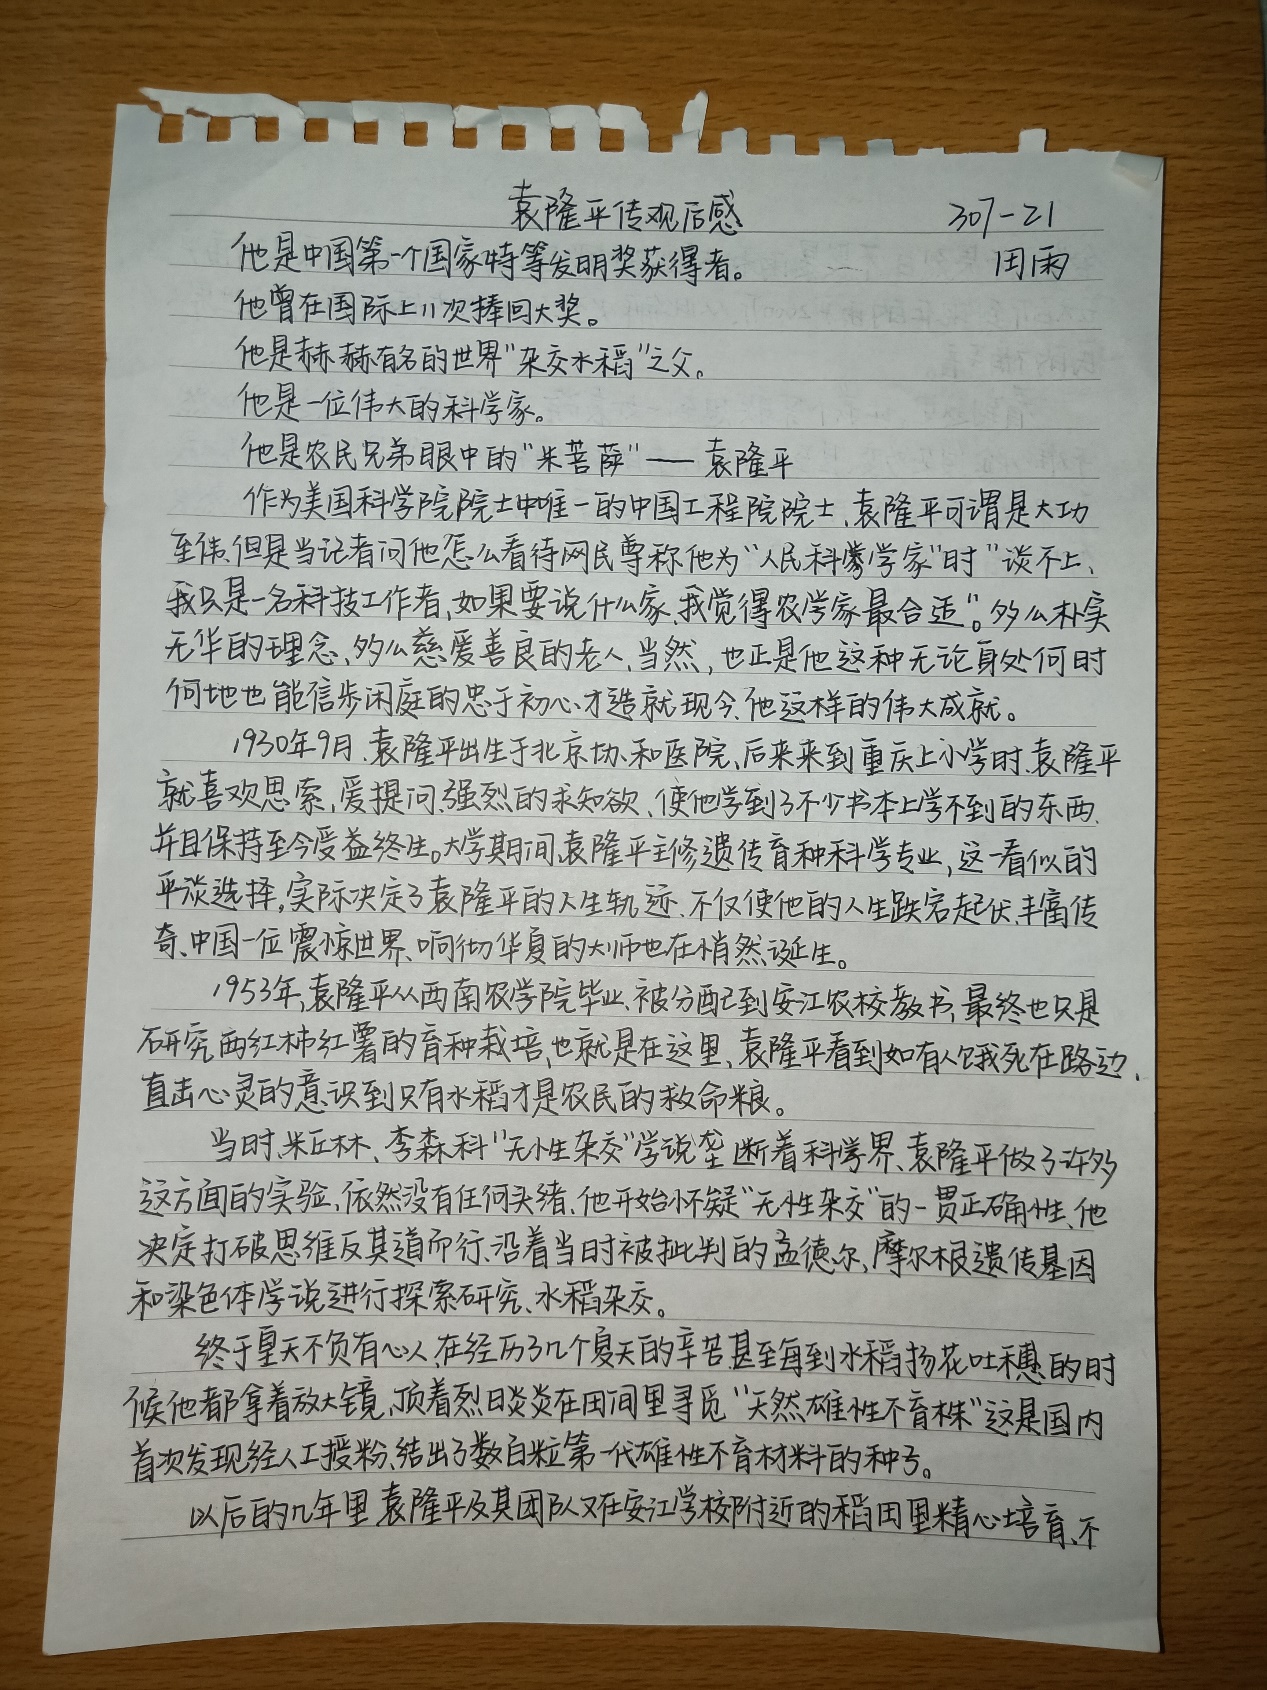 袁隆平传观后感 307-21
他是中国第一个国家特等发明奖获得者。 田雨
他曾在国际上11次捧回大奖。
他是赫赫有名的世界"杂交水稻"之父。
他是一位伟大的科学家。
他是农民兄弟眼中的"米菩萨"——袁隆平
作为美国科学院院士中唯一的中国工程院院士、袁隆平可谓是大功
至伟、但是当记者问他怎么看待网民尊称他为"人民科学家"时"谈不上、
我只是一名科技工作者、如果要说什么家、我觉得农学家最合适"。多么朴实
无华的理念、多么慈爱善良的老人、当然，也正是他这种无论身处何时
何地也能信步闲庭的忠于初心、才造就现今、他这样的伟大成就。
1930年9月、袁隆平出生于北京协和医院、后来来到重庆上小学时、袁隆平
就喜欢思索，爱提问、强烈的求知欲、使他学到了不少书本上学不到的东西、
并且保持至今受益终生。大学期间、袁隆平主修遗传育种科学专业，这一看似的
平淡选择，实际决定了袁隆平的人生轨迹、不仅使他的人生跌宕起伏、丰富传
奇、中国一位震惊世界、响彻华夏的大师也在悄然诞生。
1953年，袁隆平从西南农学院毕业、被分配到安江农校教书、最终也只是
研究两红柿红薯的育种栽培，也就是在这里、袁隆平看到如有人饿死在路边、
直击心灵的意识到只有水稻才是农民的救命粮。
当时、米丘林、李森科"无性杂交"学说垄断着科学界、袁隆平做了许多
这方面的实验，依然没有任何头绪、他开始怀疑"无性杂交"的一贯正确性、他
决定打破思维反其道而行、沿着当时被批判的孟德尔、摩尔根遗传基因
和染色体学说进行探索研究、水稻杂交。
终于皇天不负有心人、在经历了几个夏天的辛苦、甚至每到水稻扬花吐穗的时
候他都拿着放大镜、顶着烈日炎炎在田间里寻觅"天然雄性不育株"这是国内
首次发现经人工授粉、结出了数百粒第一代雄性不育材料的种子。
以后的几年里、袁隆平及其团队又在安江学校附近的稻田里精心培育、不